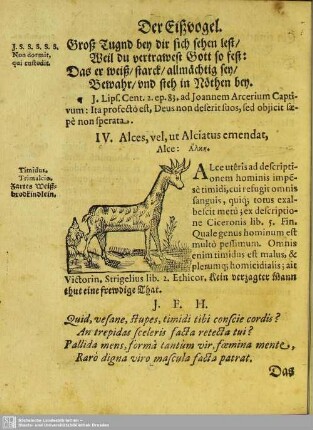 Der Eißvogel.
J. S. S. S. S. S.
Non dormit,
qui custodit.
Groß Tugnd bey dir sich sehen lest/
Weil du vertrawest Gott so fest:
Das er weiß/ starck/ allmächtig sey/
Bewahr/ vnd steh in Nöthen bey.
J. Lips. Cent. 2. ep. 83. ad Joannem Arcerium Capti-
vum: Ita profectò est, Deus non deserit suos, sed objicit sæ-
pè non sperata.
IV. Alces, vel, ut Alciatus emendat,
Alce:
Timidus.
Trimalcio.
Zartes Weiß-
brodKindlein.
ALce utêris ad descripti-
onem hominis impē-
sè timidi, cui refugit omnis
sanguis, quiq; totus exal-
bescit metu; ex descriptio-
ne Ciceronis lib. 5. Fin.
Quale genus hominum est
multò pessimum. Omnis
enim timidus est malus, &
plenumq; homicidialis; ait
Victorin. Strigelius lib. 2. Ethicor. Kein verzagter Mann
thut eine frewdige That.
J. F. H.
Quid, vesane, stupes, timidi tibi conscie cordis?
An trepidas sceleris facta retecta tui?
Pallida mens, formâ tantùm vir, fœmina mente,
Rarò digna viro mascula facta patrat.
Das